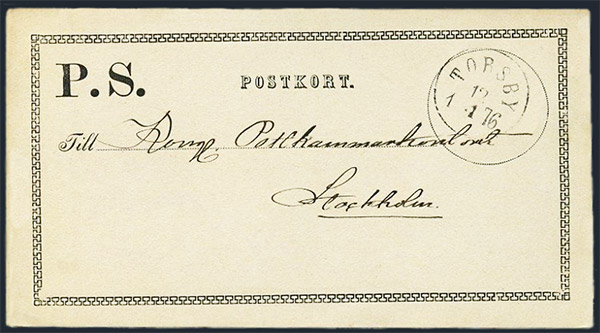 P.S.
POSTKORT.
TORSBY
12
1 76
Till Kongl. Postkammarkontoret
Stockholm.